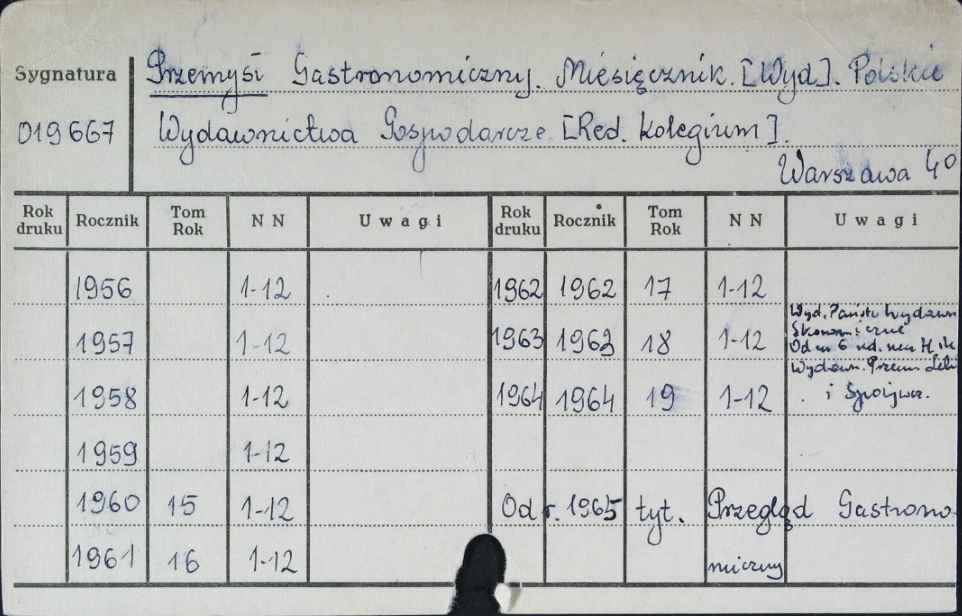 Sygnatura Przemysł Gastronomiczny. Miesięcznik. [Wyd]. Polskie
019667 Wydawnictwa Gospodarcze [Red. Kolegium].
Warszawa 4°
Rok druku Rocznik Tom Rok NN Uwagi Rok druku Rocznik Tom Rok NN Uwagi
1956 1-12 1962 1962 17 1-12
1957 1-12 1963 1963 18 1-12 Wyd. Państw Wydawn
Ekonomiczne
Od nr 6
Wydawn. Przem
1958 1-12 1964 1964 19 1-12 i Spożywcz.
1959 1-12
1960 15 1-12 Od r. 1965 tyt. Przegląd Gastrono-
1961 16 1-12 miczny